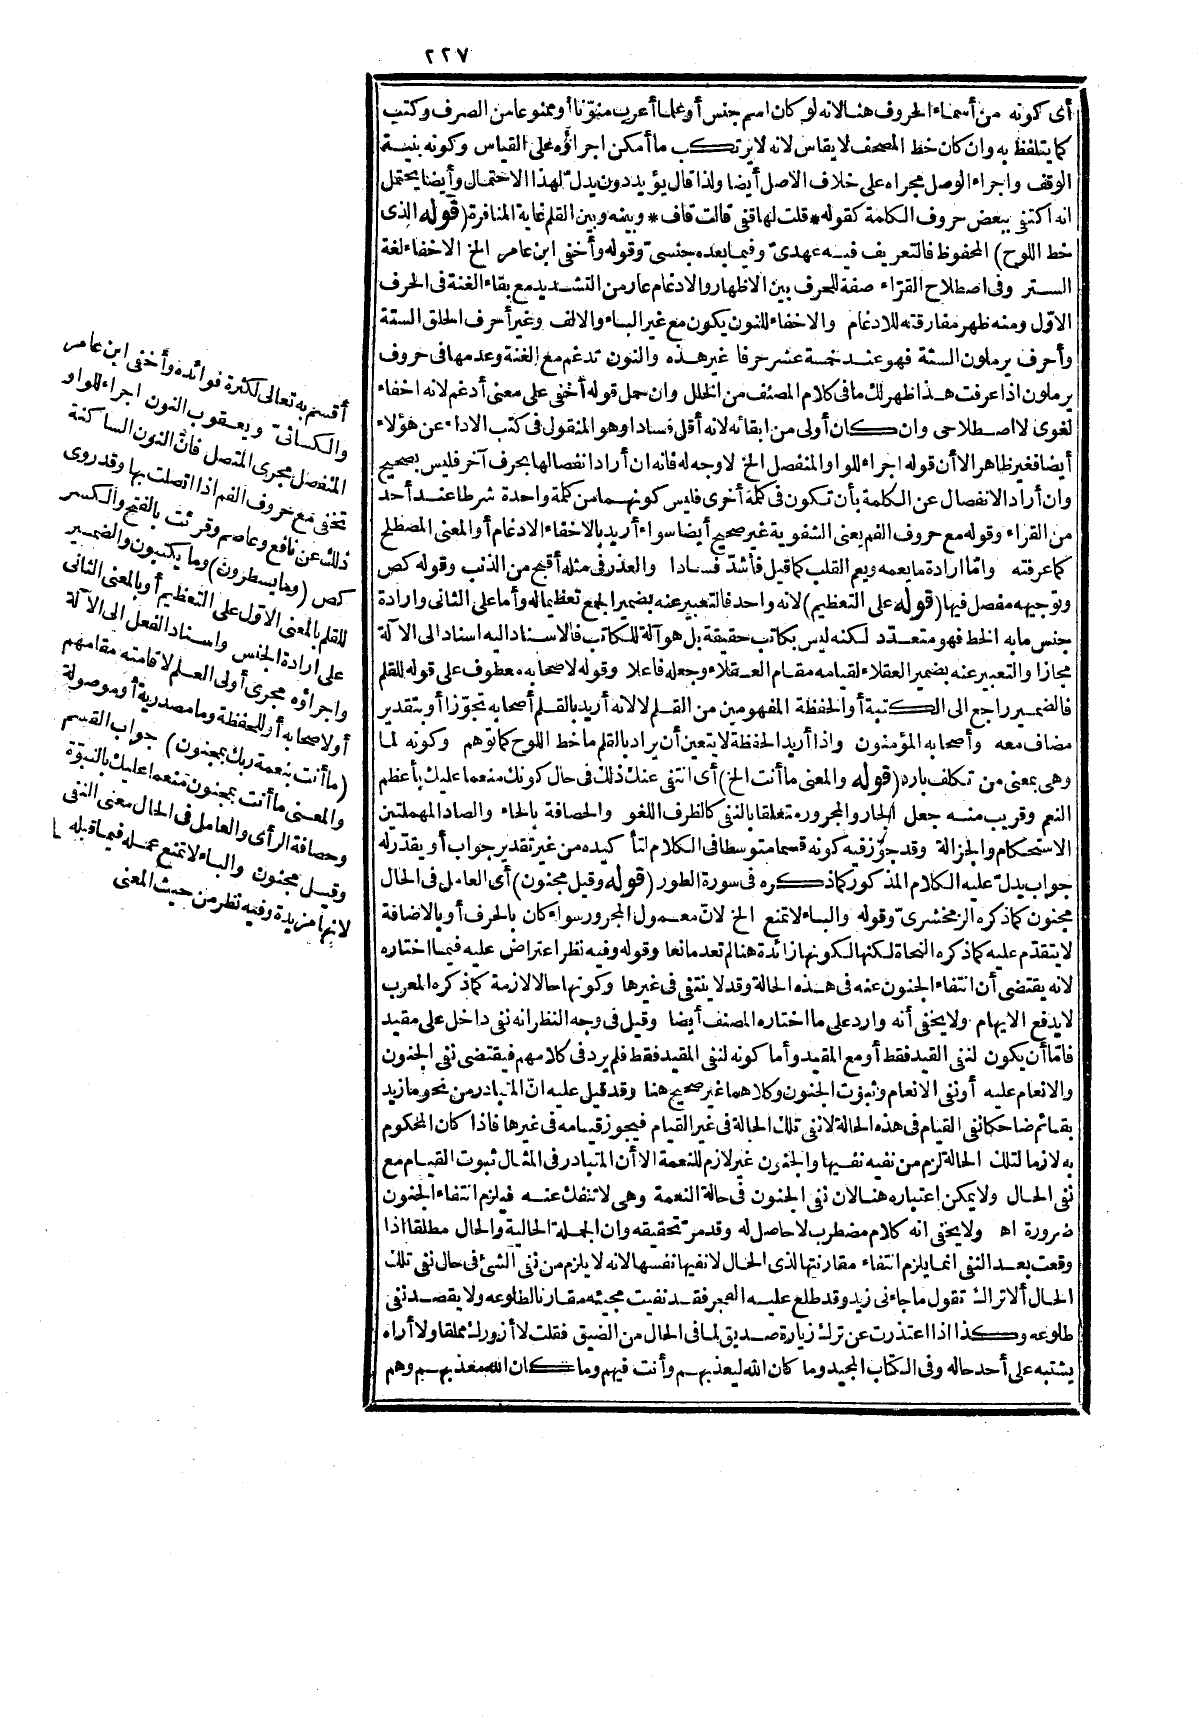 ٢٢٧
أى كونه من أسماء الحروف هنا لانه لو كان اسم جنس أو علما أعرب منوّنا أو ممنوعا من الصرف وكتب
كما يتلفظ به وان كان خط المصحف لا يقاس لانه لا يرتكب ما أمكن اجراؤه على القياس وكونه بنية
الوقف واجراء الوصل مجراه على خلاف الاصل أيضا ولذا قال يؤيد دون يدل لهذا الاحتمال وأيضا يحتمل
انه اكتفى ببعض حروف الكلمة كقوله * قلت لها قفى قالت قاف * وبينه وبين القلم غاية المنافرة (قوله الذى
خط اللوح) المحفوظ فالتعريف فيه عهدىّ وفيما بعده جنسىّ وقوله وأخفى ابن عامر الخ الاخفاء لغة
الستر وفى اصطلاح القرّاء صفة للحرف بين الاظهار والادغام عار من التشديد مع بقاء الغنة فى الحرف
الاوّل ومنه ظهر مفارقته للادغام والاخفاء للنون يكون مع غير الباء والالف وغير أحرف الحلق الستة
وأحرف يرملون الستة فهو عند خمسة عشر حرفا غير هذه والنون تدغم مع الغنة وعدمها فى حروف
يرملون اذا عرفت هذا ظهر لك ما فى كلام المصنف من الخلل وان حمل قوله أخفى على معنى أدغم لانه اخفاء
لغوى لا اصطلاحى وان كان أولى من ابقائه لانه أقل فسادا وهو المنقول فى كتب الاداء عن هؤلاء
أيضا فغير ظاهر الا أن قوله اجراء للواو المنفصل الخ لا وجه له فانه ان أراد انفصالها بحرف آخر فليس بصحيح
وان أراد الانفصال عن الكلمة بأن تكون فى كلمة أخرى فليس كونهما من كلمة واحدة شرطا عند أحد
من القراء وقوله مع حروف الفم يعنى الشفوية غير صحيح أيضا سواء أريد بالاخفاء الادغام أو المعنى المصطلح
كما عرفته وامّا ارادة ما يعمه ويعم القلب كما قيل فأشدّ فسادا والعذر فى مثله أقبح من الذنب وقوله كص
وتوجيهه مفصل فيها (قوله على التعظيم) لانه واحد فالتعبير عنه بضمير الجمع تعظيما له وأما على الثانى وارادة
جنس ما به الخط فهو متعدّد لكنه ليس بكاتب حقيقة بل هو آلة للكاتب فالاسناد اليه اسناد الى الآلة
مجازا والتعبير عنه بضمير العقلاء لقيامه مقام العقلاء وجعله فاعلا وقوله لاصحابه معطوف على قوله للقلم
فالضمير راجع الى الكتبة أو الحفظة المفهومين من القلم لا لانه أريد بالقلم أصحابه تجوّزا أو بتقدير
مضاف معه وأصحابه المؤمنون واذا أريد الحفظة لا يتعين أن يراد بالقلم ما خط اللوح كما توهم وكونه لما
وهى بمعنى من تكلف بارد (قوله والمعنى ما أنت الخ) أى انتفى عنك ذلك فى حال كونك منعما عليك بأعظم
النعم وقريب منه جعل الجار والمجرور متعلقا بالنفى كالظرف اللغو والحصافة بالحاء والصاد المهملتين
الاستحكام والجزالة وقد جوّز فيه كونه قسما متوسطا فى الكلام لتأكيده من غير تقدير جواب أو يقدّر له
جواب يدلّ عليه الكلام المذكور كما ذكره فى سورة الطور (قوله وقيل مجنون) أى العامل فى الحال
مجنون كما ذكره الزمخشرىّ وقوله والباء لا تمنع الخ لانّ معمول المجرور سواء كان بالحرف أو بالاضافة
لا يتقدّم عليه كما ذكره النحاة لكنها لكونها زائدة هنا لم تعد مانعا وقوله وفيه نظر اعتراض عليه فيما اختاره
لانه يقتضى أن انتفاء الجنون عنه فى هذه الحالة وقد لا ينتفى فى غيرها وكونها حالا لازمة كما ذكره المعرب
لا يدفع الايهام ولا يخفى أنه وارد على ما اختاره المصنف أيضا وقيل فى وجه النظر انه نفى داخل على مقيد
فامّا أن يكون لنفى القيد فقط أو مع المقيد وأما كونه لنفى المقيد فقط فلم يرد فى كلامهم فيقتضى نفى الجنون
والانعام عليه أو نفى الانعام وثبوت الجنون وكلاهما غير صحيح هنا وقد قيل عليه انّ المتبادر من نحو ما زيد
بقائم ضاحكا نفى القيام فى هذه الحالة لا نفى تلك الحالة فى غير القيام فيجوز قيامه فى غيرها فاذا كان المحكوم
به لازما لتلك الحالة لزم من نفيه نفيها والجنون غير لازم للنعمة الا أن المتبادر فى المثال ثبوت القيام مع
نفى الحال ولا يمكن اعتباره هنا لان نفى الجنون فى حالة النعمة وهى لا تنفك عنه فيلزم انتفاء الجنون
ضرورة اه ولا يخفى انه كلام مضطرب لا حاصل له وقد مرّ تحقيقه وان الجملة الحالية والحال مطلقا اذا
وقعت بعد النفى انما يلزم انتفاء مقارنتها لذى الحال لا نفيها نفسها لانه لا يلزم من نفى الشئ فى حال نفى تلك
الحال ألا تراك تقول ما جاءنى زيد وقد طلع عليه الفجر فقد نفيت مجيئه مقارنا لطلوعه ولا يقصد نفى
طلوعه وكذا اذا اعتذرت عن ترك زيارة صديق لما فى الحال من الضيق فقلت لا أزورك مملقا ولا أراه
يشتبه على أحد حاله وفى الكتاب المجيد وما كان الله ليعذبهم وأنت فيهم وما كان الله معذبهم وهم
أقسم به تعالى لكثرة فوائده وأخفى ابن عامر
والكسائىّ ويعقوب النون اجراء للواو
المنفصل مجرى المتصل فانّ النون الساكنة
تخفى مع حروف الفم اذا اتصلت بها وقد روى
ذلك عن نافع وعاصم وقرئت بالفتح والكسر
كص (وما يسطرون) وما يكتبون والضمير
للقلم بالمعنى الاول على التعظيم أو بالمعنى الثانى
على ارادة الجنس واسناد الفعل الى الآلة
واجراؤه مجرى أولى العلم لاقامته مقامهم
أو لاصحابه أو للحفظة وما مصدرية أو موصولة
(ما أنت بنعمة ربك بمجنون) جواب القسم
والمعنى ما أنت بمجنون منعما عليك بالنبوّة
وحصافة الرأى والعامل فى الحال معنى النفى
وقيل مجنون والباء لا تمنع عمله فيما قبله
لانها مزيدة وفيه نظر من حيث المعنى